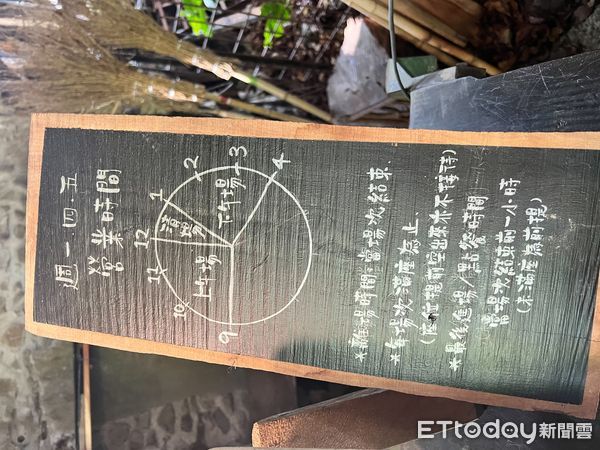 週一.四.五
營業時間
12
11
1
清場
10
2
上午場
下午場
9
3
4
*離場時間:當場次結束.
*每場次滿座為止.
(座位提前空出來亦不接待)
*最後進場/點餐時間
當場次結束前一小時
(未滿座為前提)
ETtoday新聞雲